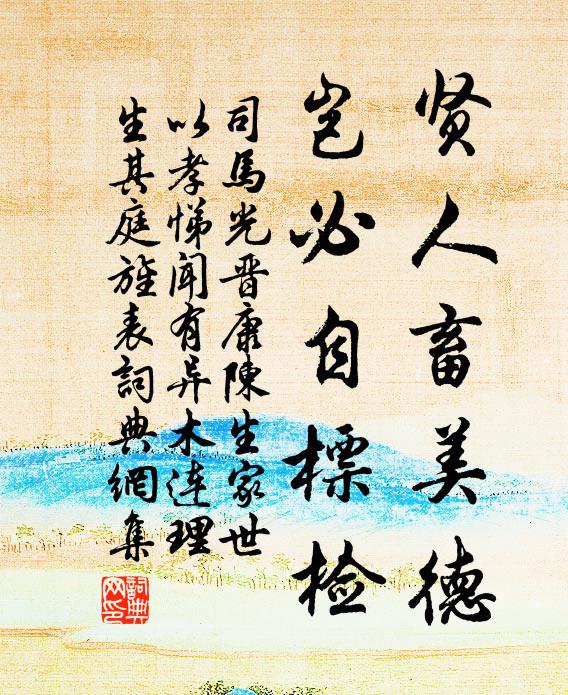 贤人畜美德
岂必自標检
司馬光晋康陳生家世
以孝悌闻有异木连理
生其庭旌表詞典網集
詞典
网印